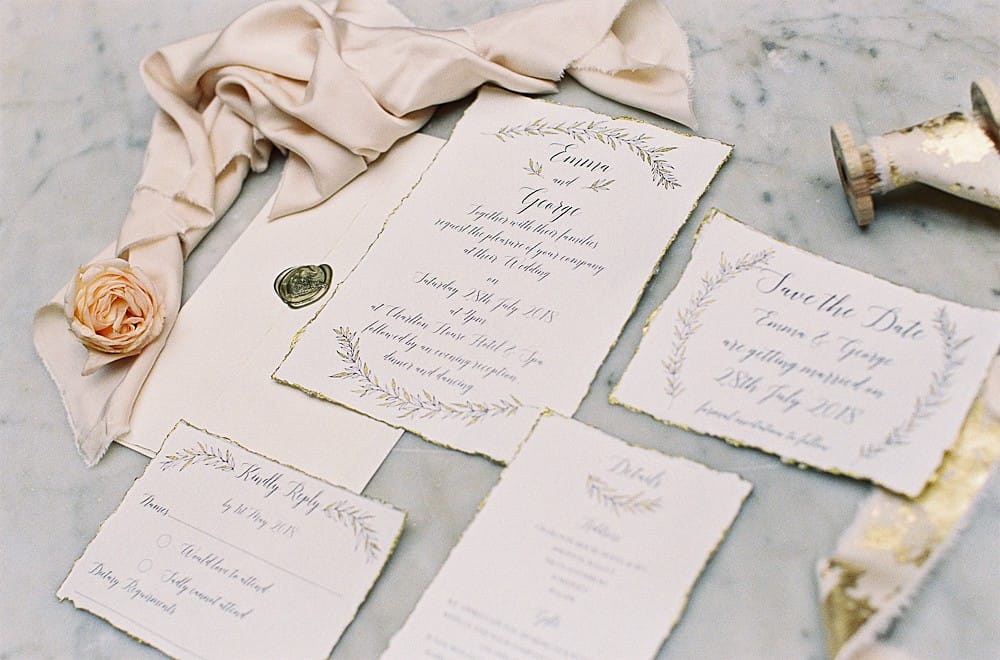 Emma
and
George
Together with their families
request the pleasure of your company
at their Wedding
on
Saturday 28th July 2018
at 4pm
at Charlton House Hotel & Spa
followed by an evening reception,
dinner and dancing
Save the Date
Emma & George
are getting married on
28th July 2018
formal invitation to follow
Kindly Reply
by 1st May 2018
Names
Would love to attend
Sadly cannot attend
Dietary Requirements
Details
Address
Gifts